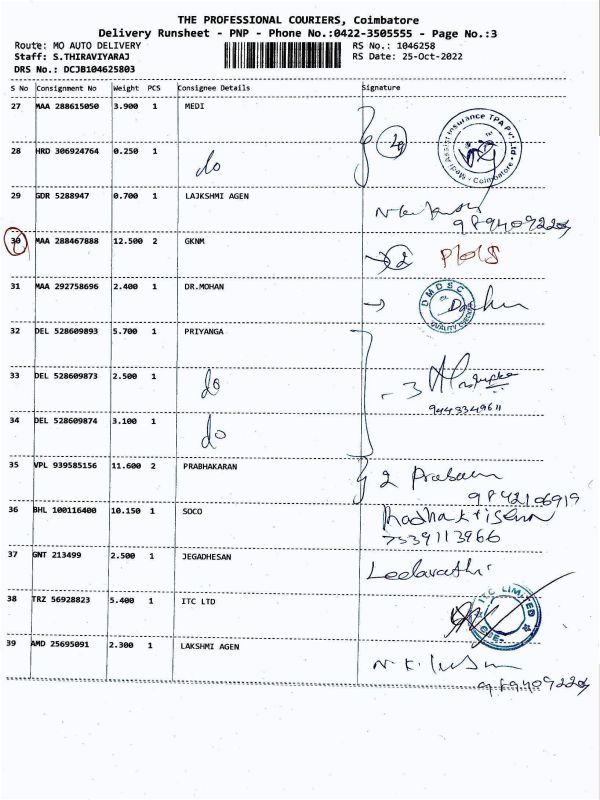 THE PROFESSIONAL COURIERS, Coimbatore
Delivery Runsheet - PNP - Phone No.:0422-3505555 - Page No.:3
Route: MO AUTO DELIVERY RS No.: 1046258
Staff: S.THIRAVIYARAJ RS Date: 25-Oct-2022
DRS No.: DCJB104625803
S No Consignment No Weight PCS Consignee Details Signature
27 MAA 288615050 3.900 1 MEDI
Medi Assist Insurance TPA Pvt Ltd Coimbatore
28 HRD 306924764 0.250 1 do
29 GDR 5288947 0.700 1 LAJKSHMI AGEN
9894092204
30 MAA 288467888 12.500 2 GKNM 2
31 MAA 292758696 2.400 1 DR.MOHAN
DMDSC
32 DEL 528609893 5.700 1 PRIYANGA
33 DEL 528609873 2.500 1 do - 3
9443349611
34 DEL 528609874 3.100 1 do
35 VPL 939585156 11.600 2 PRABHAKARAN 2
9842106919
36 BHL 100116400 10.150 1 SOCO Radhakrishnan
7339113966
37 GNT 213499 2.500 1 JEGADHESAN Leelavathi
38 TRZ 56928823 5.400 1 ITC LTD
ITC LIMITED
39 AMD 25695091 2.300 1 LAKSHMI AGEN
9894092204